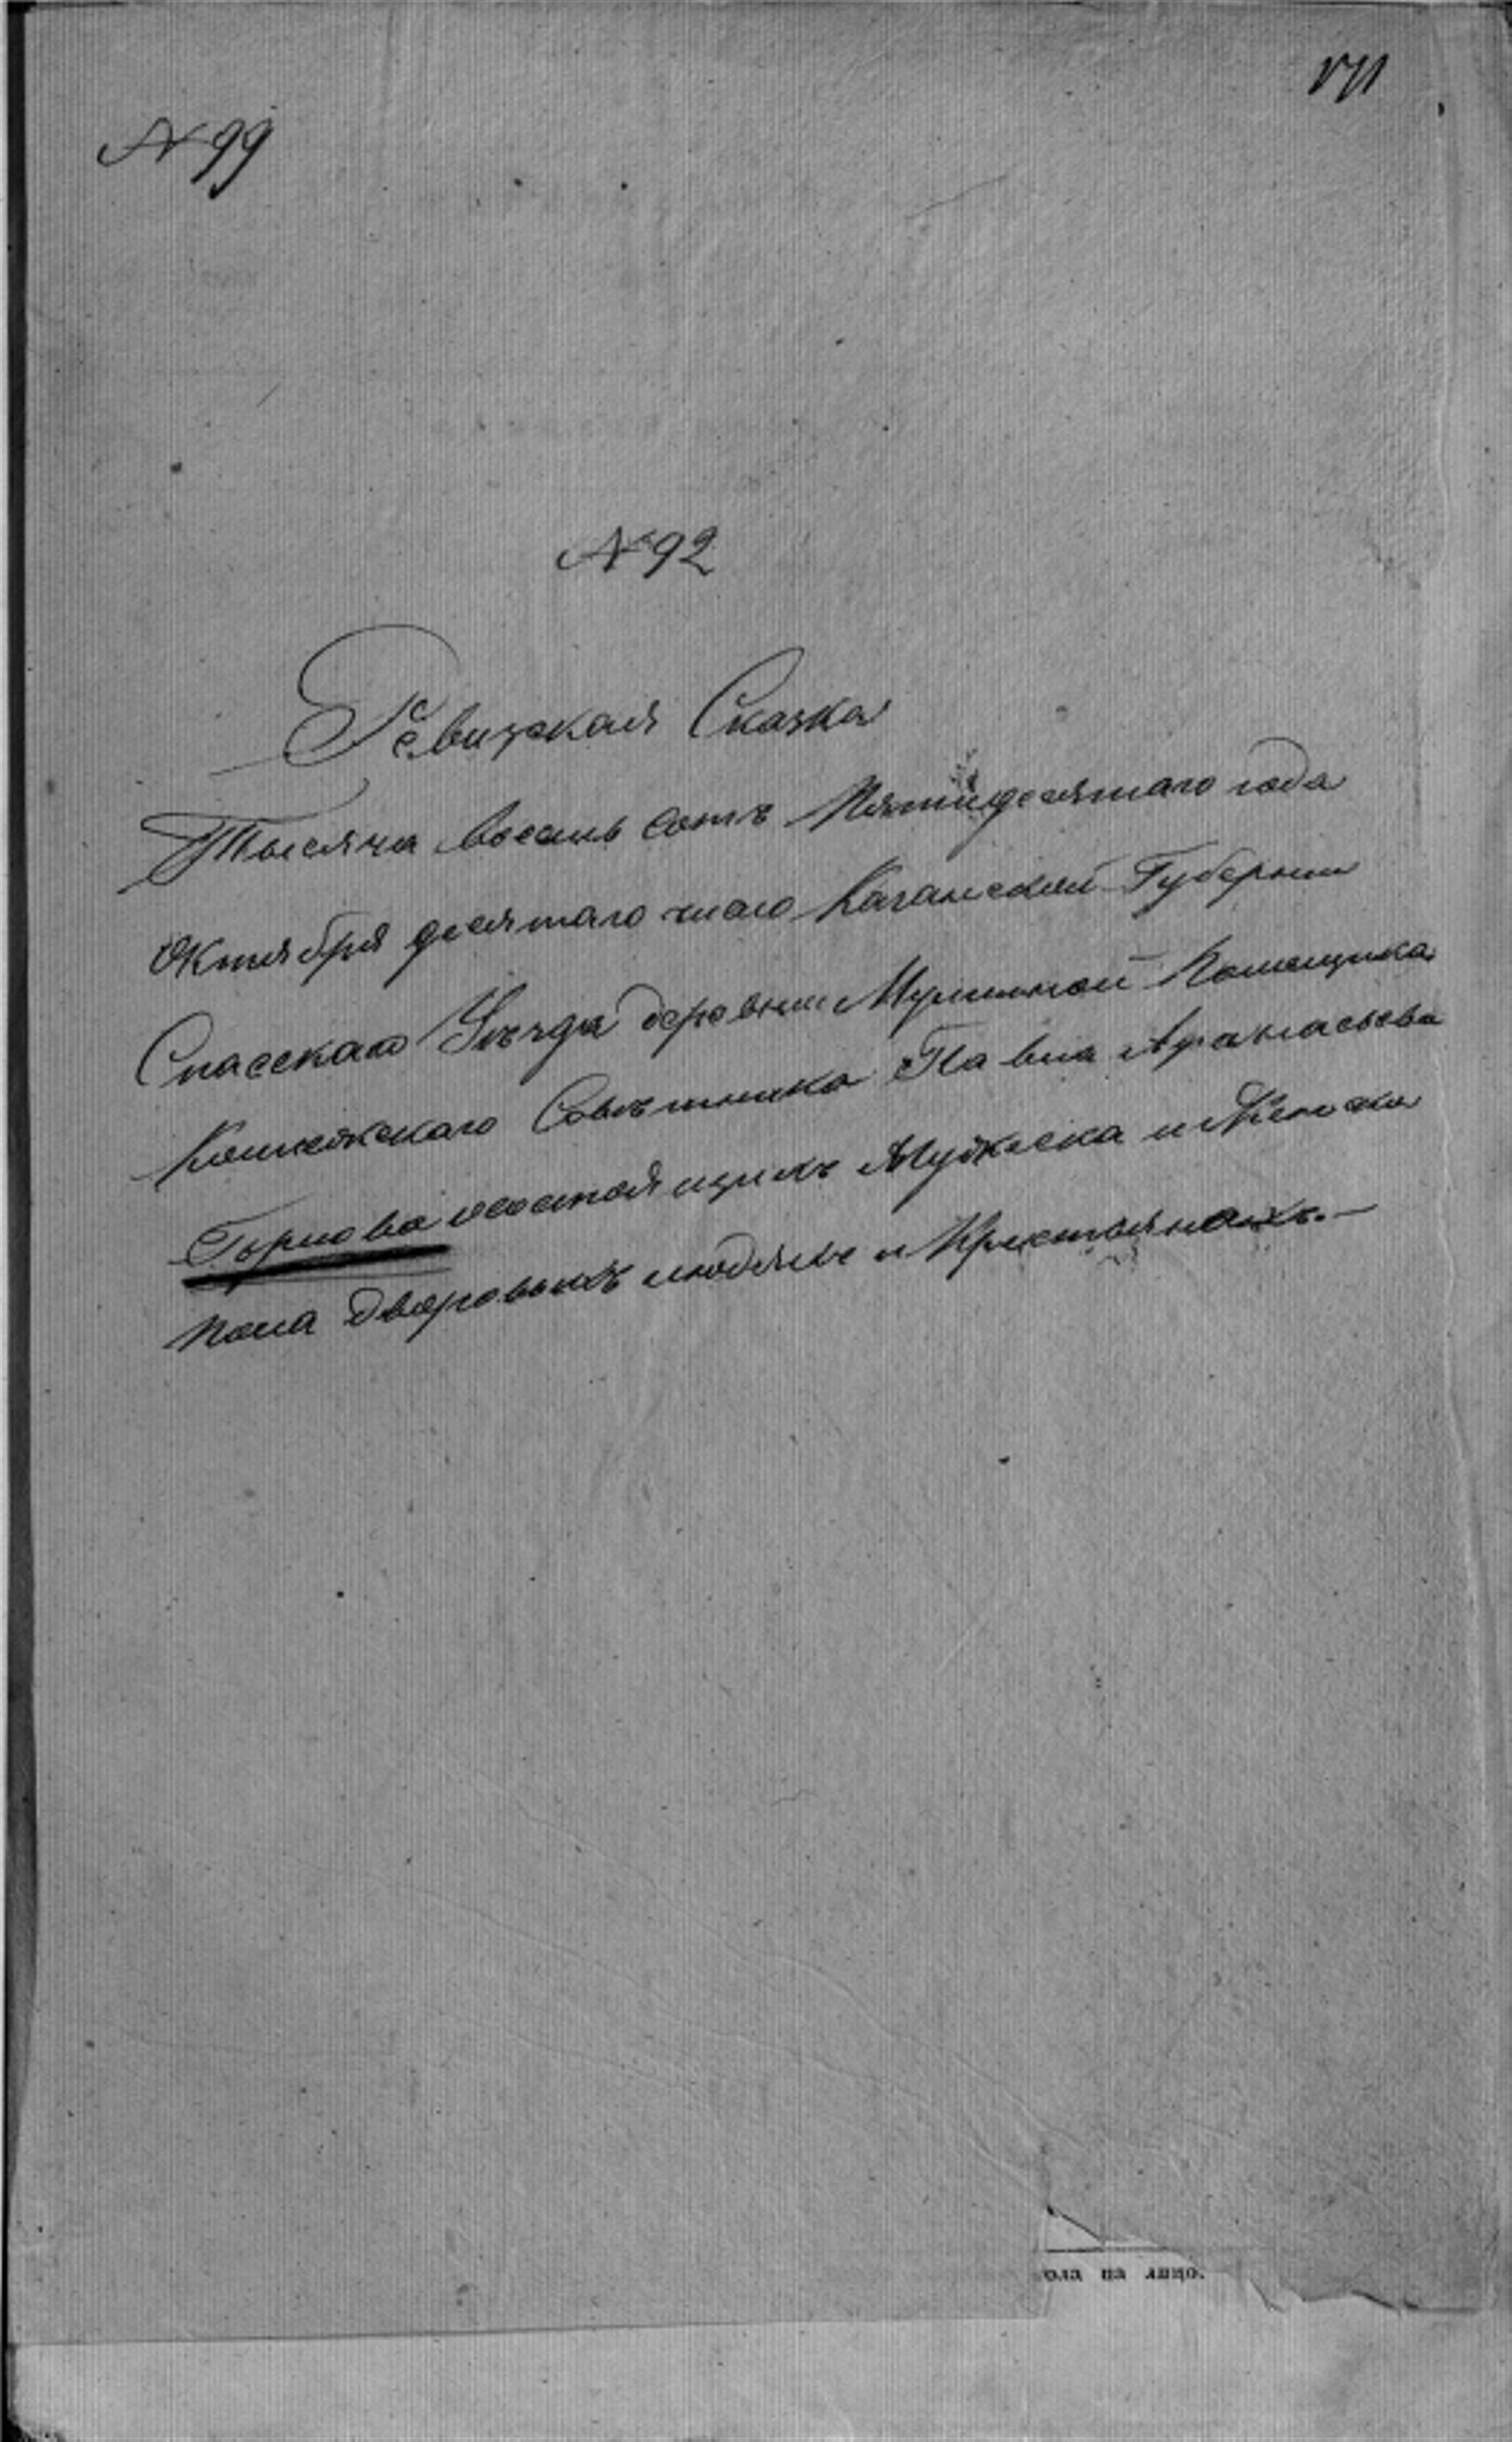 № 99
№ 92
Ревизская Сказка
Тысяча восемь сотъ Пятидесятаго года
Октября десятаго числа Казанской Губернии
Спасскаго Уѣзда деревни Помещика
Коллежскаго Совѣтника Павла Афанасьева
о состоящихъ Мужеска и Женска
пола дворовыхъ людяхъ и Крестьянахъ.—
ола на лицо.